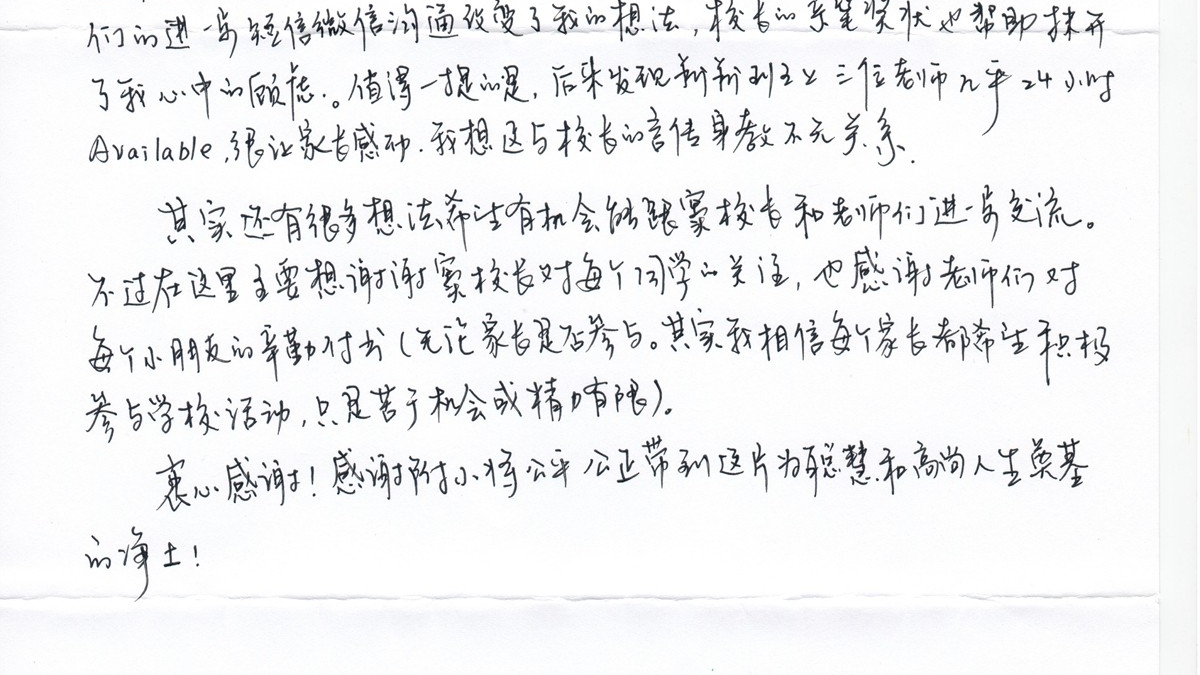 们的进一步短信微信沟通改变了我的想法，校长的亲笔奖状也帮助抹开
了我心中的顾虑.。值得一提的是，后来发现 三位老师几乎24小时
Available，很让家长感动.我想这与校长的言传身教不无关系.
其实还有很多想法希望有机会能跟窦校长和老师们进一步交流。
不过在这里主要想谢谢窦校长对每个同学的关注，也感谢老师们对
每个小朋友的辛勤付出（无论家长是否参与。其实我相信每个家长都希望积极
参与学校活动，只是苦于机会或精力有限）。
衷心感谢！感谢附小将公平公正带到这片为聪慧和高尚人生奠基
的净土！